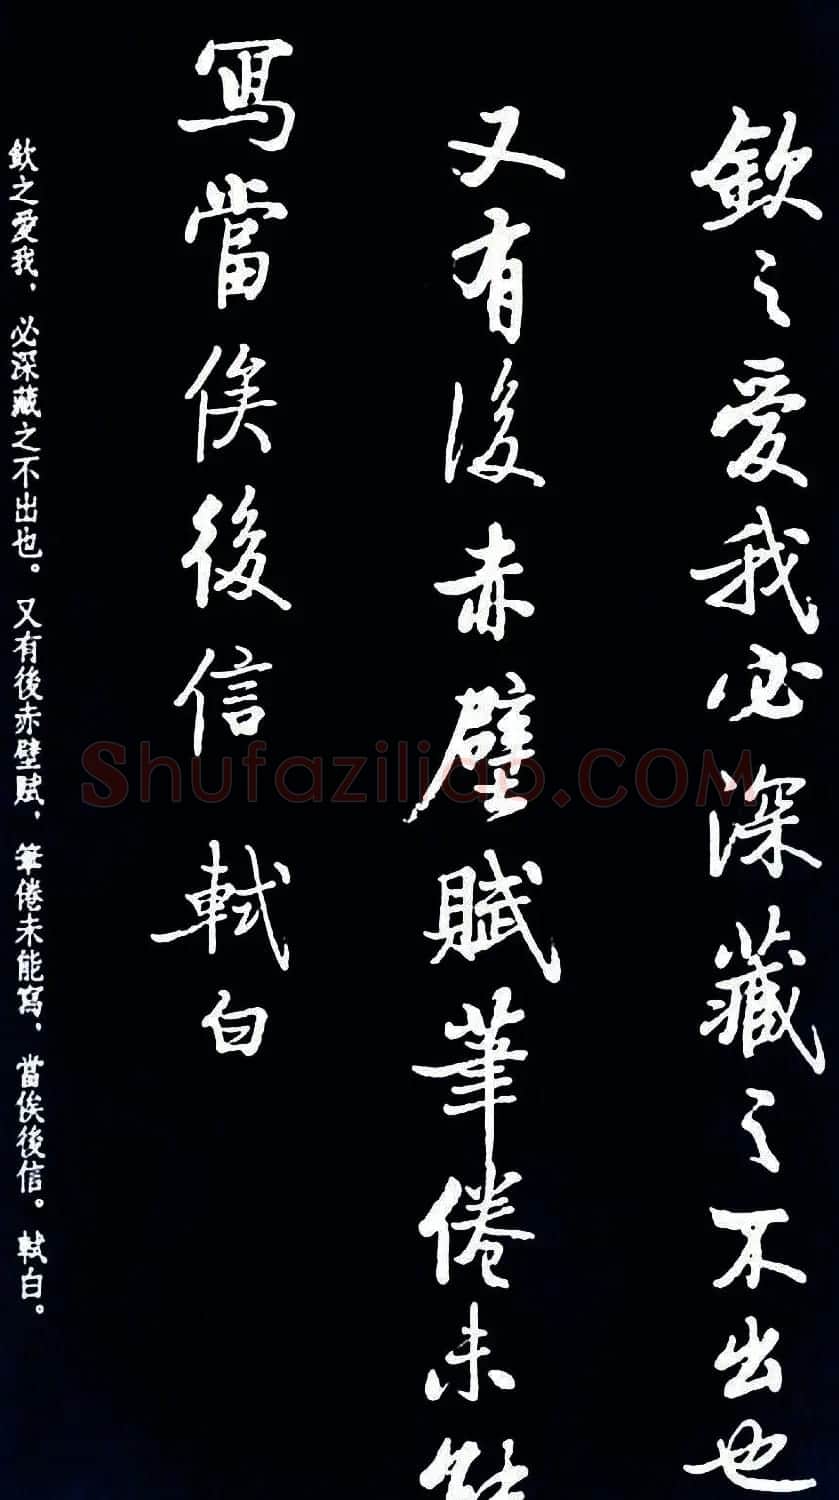 欽之愛我必深藏之不出也
又有後赤壁賦筆倦未能
寫當俟後信 軾白
欽之愛我、必深藏之不出也。又有後赤壁賦、筆倦未能寫、當俟後信。軾白。
Shufaziliao.COM